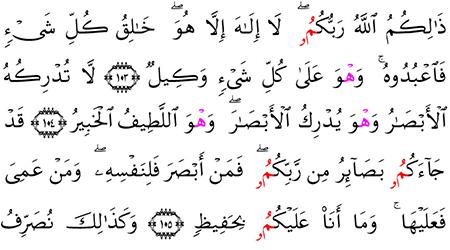 ذَٰلِكُمُ ٱللَّهُ رَبُّكُمُۥۖ لَآ إِلَٰهَ إِلَّا هُوَۖ خَٰلِقُ كُلِّ شَىْءٖ
فَٱعْبُدُوهُۚ وَهْوَ عَلَىٰ كُلِّ شَىْءٖ وَكِيلٞ ١٠٣ لَّا تُدْرِكُهُ
ٱلْأَبْصَٰرُ وَهْوَ يُدْرِكُ ٱلْأَبْصَٰرَۖ وَهْوَ ٱللَّطِيفُ ٱلْخَبِيرُ ١٠٤ قَدْ
جَآءَكُمُۥ بَصَآئِرُ مِن رَّبِّكُمُۥۖ فَمَنْ أَبْصَرَ فَلِنَفْسِهِۦۖ وَمَنْ عَمِىَ
فَعَلَيْهَاۚ وَمَآ أَنَا۠ عَلَيْكُمُۥ بِحَفِيظٖ ١٠٥ وَكَذَٰلِكَ نُصَرِّفُ